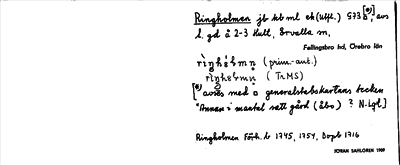 Ringholmen jb kb ml ek (utfl.) §73b [*], avs
l. gd å 2-3 Hult, Ervalla sn,
Fellingsbro hd, Örebro län
(prim.-ant.)
(TrMS)
[*] avses med □ generalstabskartans tecken
"Annan i mantal satt gård (åbo) ? N-Lgl]
Ringholmen Förh.b 1745, 1754, Dopb 1716
JÖRAN SAHLGREN 1909